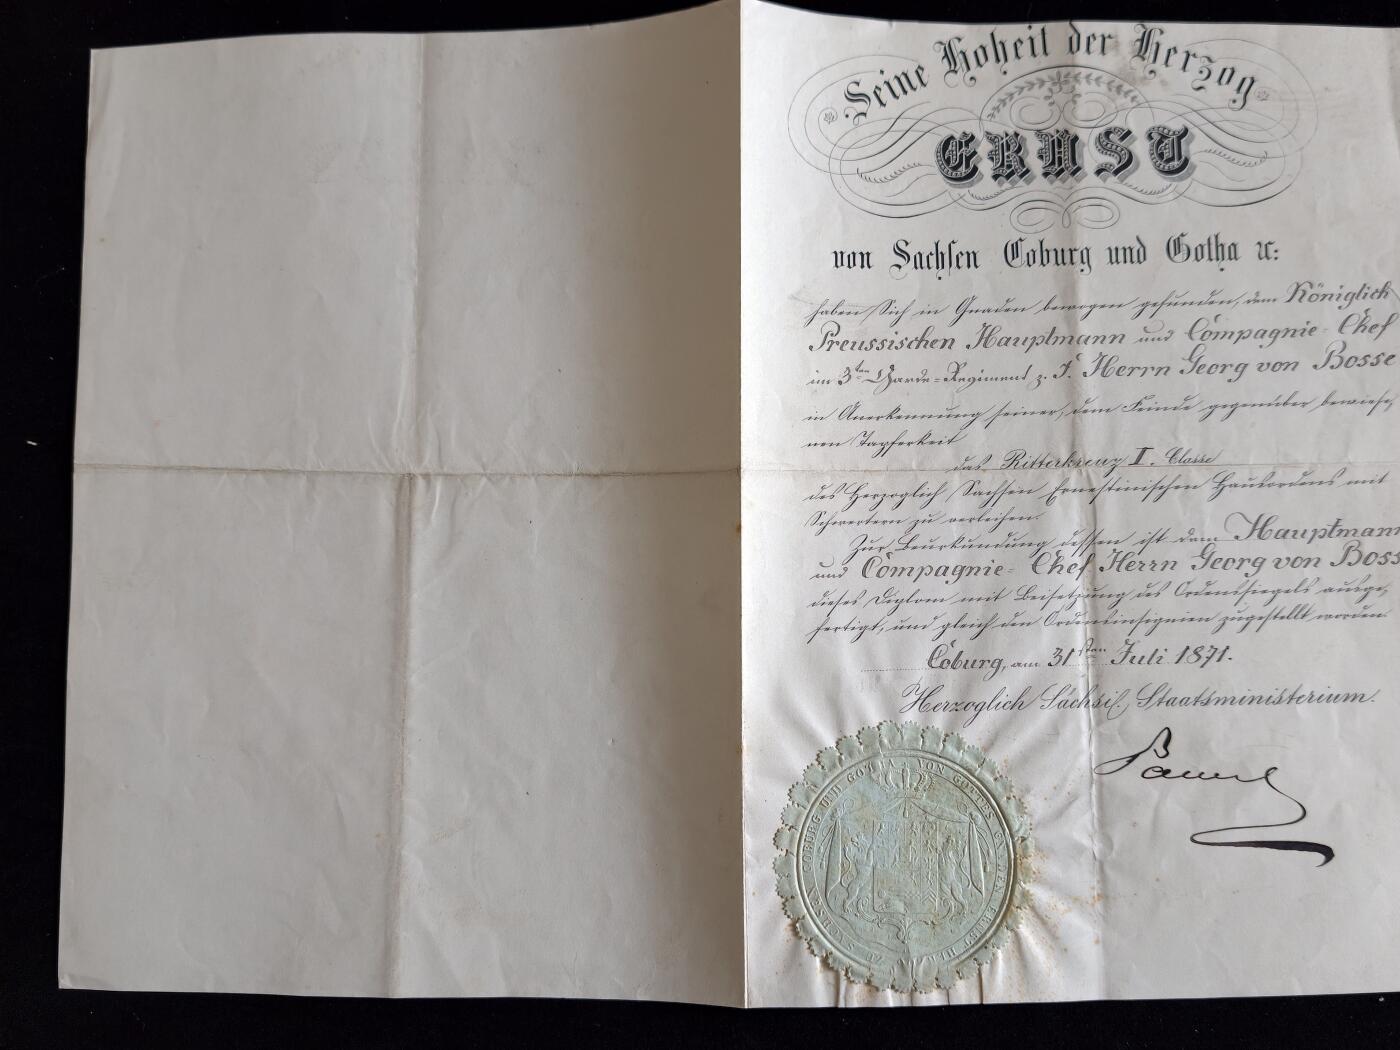 Seine Hoheit der Herzog
ERNST
von Sachsen Coburg und Gotha ꝛc:
haben Sich in Gnaden bewogen gefunden, dem Königlich
Preussischen Hauptmann und Compagnie-Chef
im 3ten Garde-Regiment z. F. Herrn Georg von Bosse
in Anerkennung seiner, dem Feinde gegenüber bewiese,
nen Tapferkeit
das Ritterkreuz I. Classe
des Herzoglich Sachsen Ernestinischen Hausordens mit
Schwertern zu verleihen.
Zur Beurkundung dessen ist dem Hauptmann
und Compagnie-Chef Herrn Georg von Boss
dieses Diplom mit Beisetzung des Ordenssiegels ausge,
fertigt, und gleich den Ordensinsignien zugestellt worden.
Coburg, am 31sten Juli 1871.
Herzoglich Sächsis. Staatsministerium.
COBURG UND GOTHA VON GOTTES